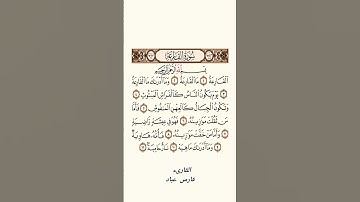 سورة القارعة
بسم الله الرحمن الرحيم
القارعة ما القارعة وما أدراك ما القارعة
يوم يكون الناس كالفراش المبثوث
وتكون الجبال كالعهن المنفوش فأما
من ثقلت موازينه فهو في عيشة راضية
وأما من خفت موازينه فأمه هاوية
وما أدراك ما هيه نار حامية
القارىء
فارس عباد